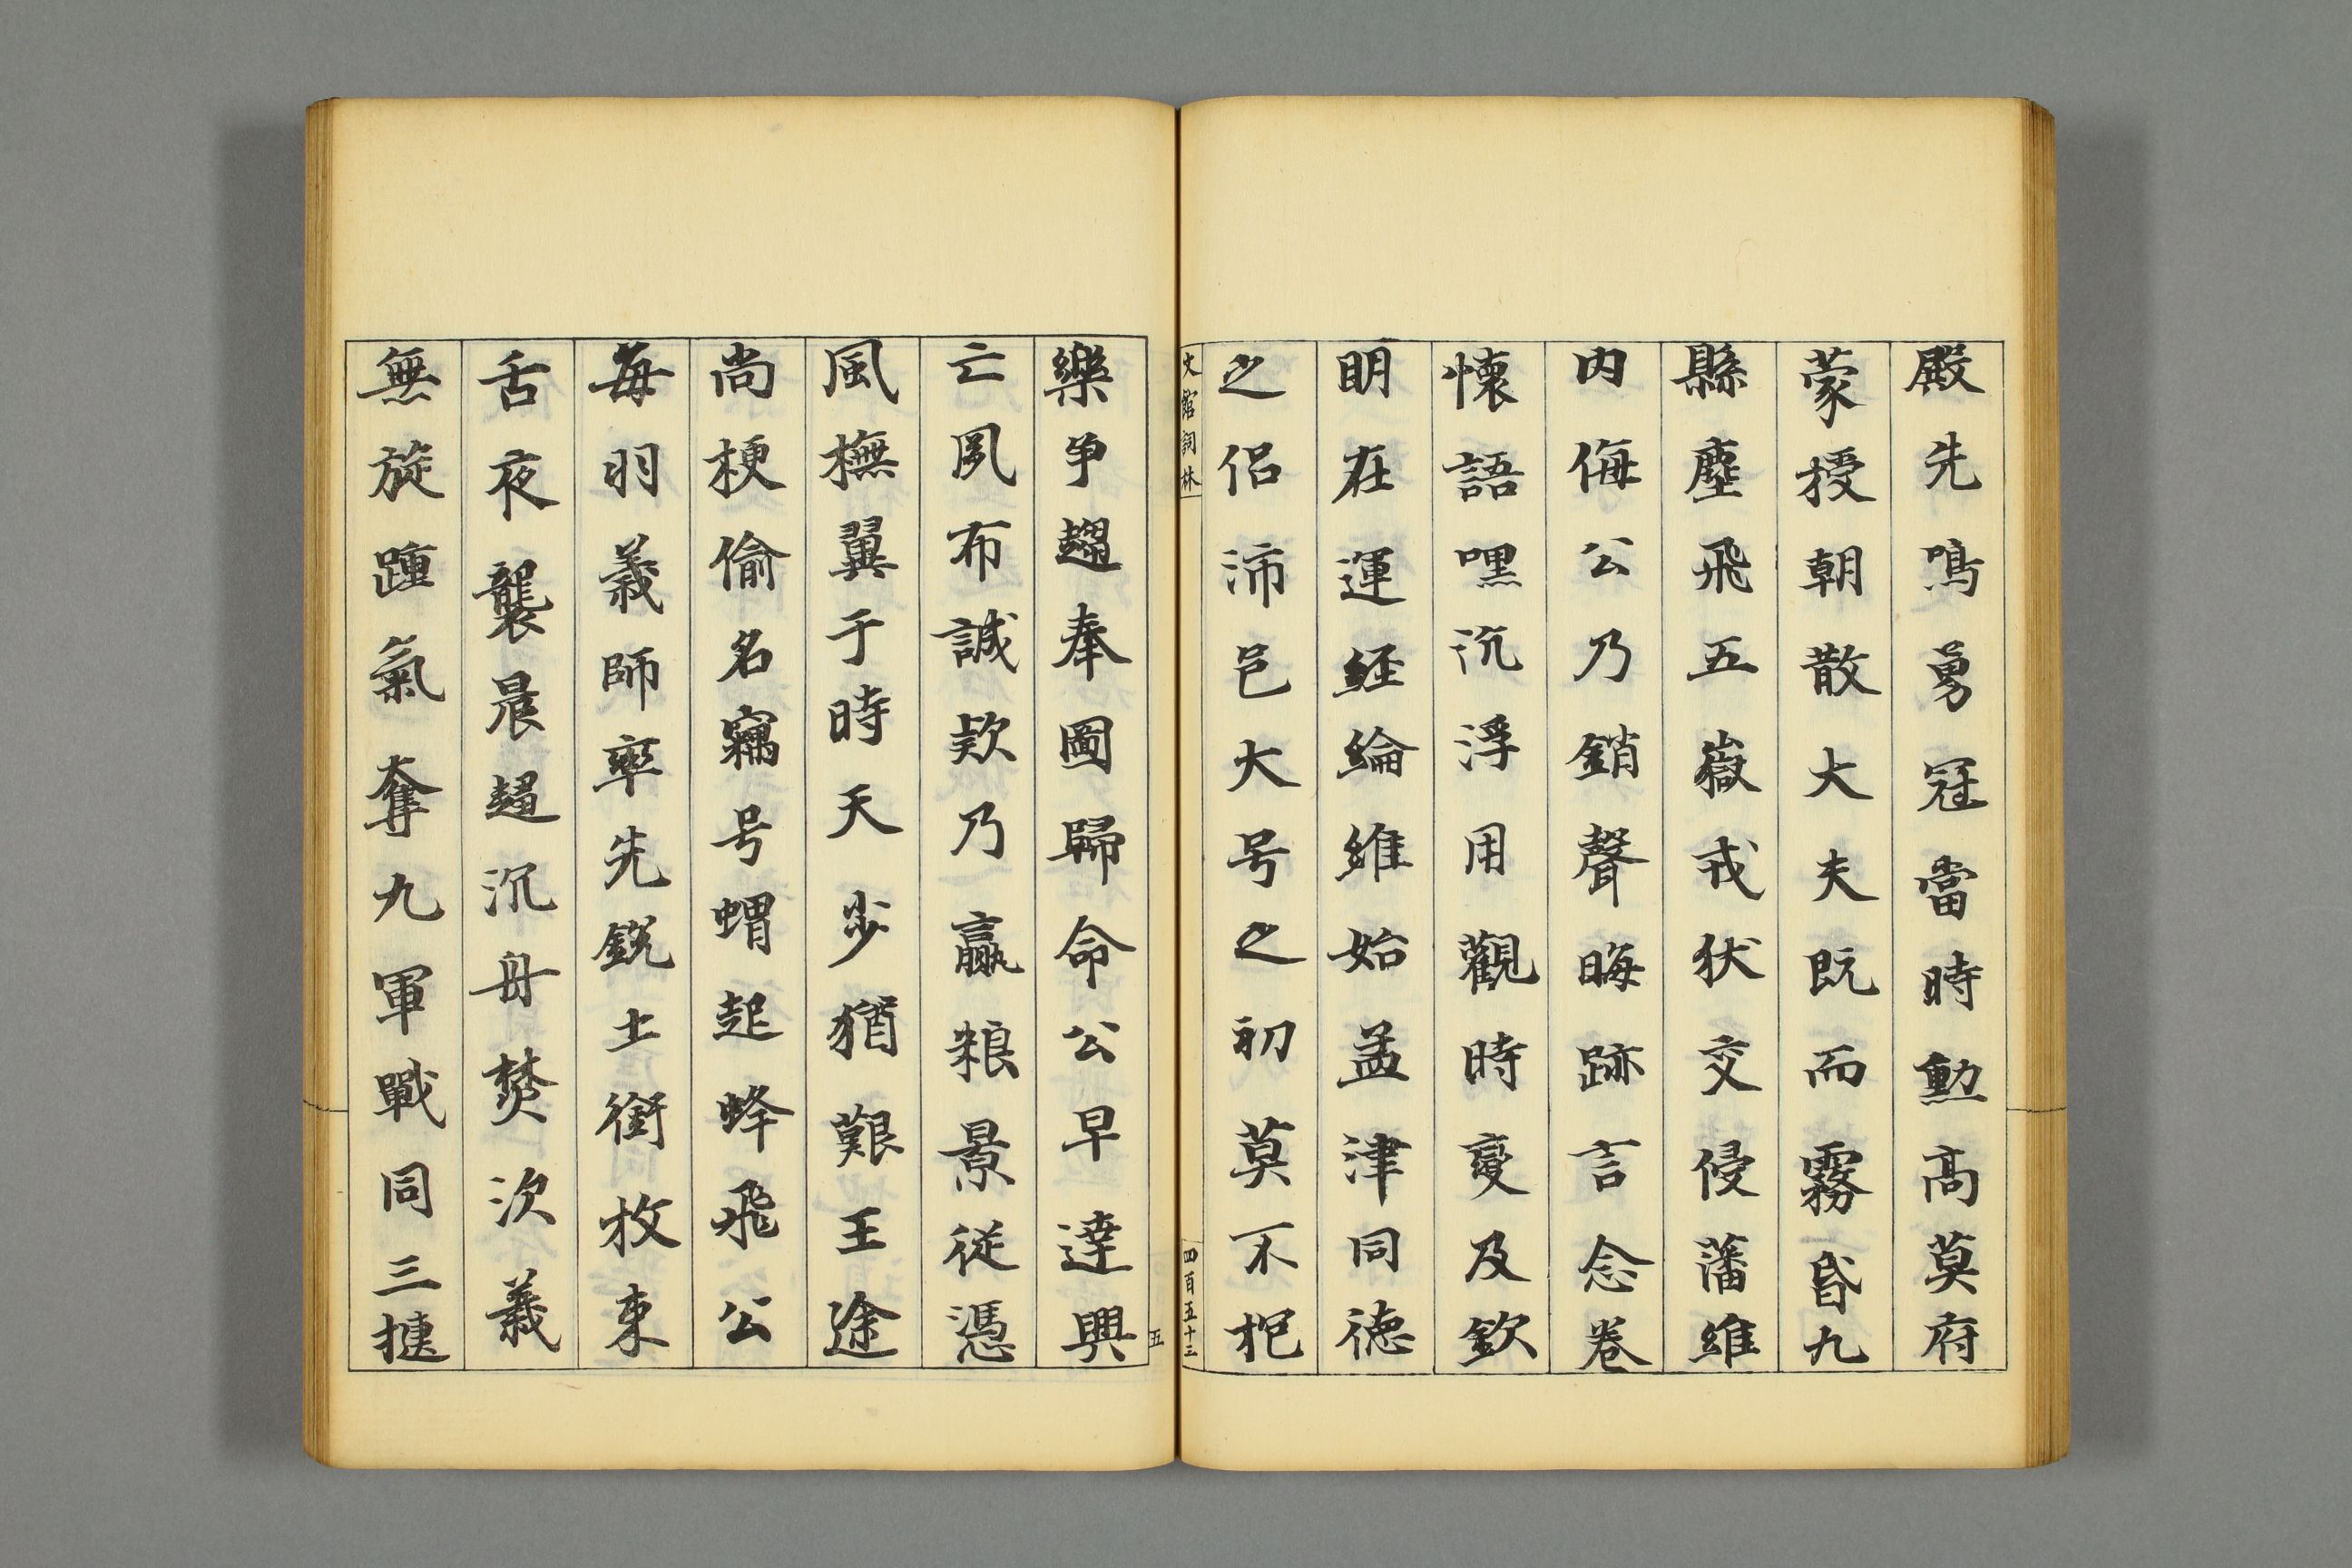 殿先鳴勇冠當時勳髙莫府
蒙授朝散大夫既而霧昏九
縣塵飛五嶽戎狄交侵藩維
内侮公乃銷聲晦跡言念卷
懷語嘿沉浮用觀時變及欽
明在運經綸維始孟津同德
之侶沛邑大号之初莫不杷
文館詞林
四百五十三
樂爭趨奉圖歸命公早達興
亡夙布誠欵乃贏粮景従憑
風撫翼于時天步猶艱王途
尚梗偷名竊号蝟起蜂飛公
每羽義師率先銳士銜枚束
舌夜襲晨趨沉舟焚次義
無旋踵氣奪九軍戰同三捷
五